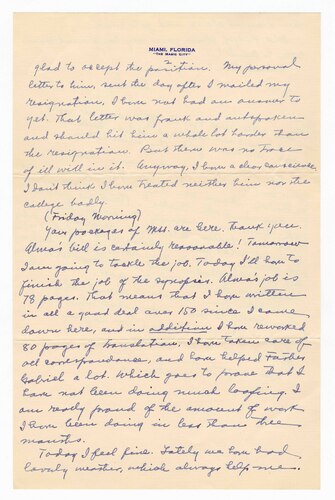 MIAMI, FLORIDA
"THE MAGIC CITY"
glad to accept the position. My personal
letter to him, sent the day after I mailed my
resignation, I have not had an answer to
yet. That letter was frank and outspoken
and should hit him a whole lot harder than
the resignation. But there was no trace
of ill will in it. Anyway, I have a clear conscience.
I don't think I have treated neither him nor the
college badly.
(Friday Morning)
Your packages of Mss. are here. Thank you.
Alma's bill is certainly reasonable! Tomorrow
I am going to tackle the job. Today I'll have to
finish the job of the synopsis. Alma's job is
78 pages. That means that I have written
in all a good deal over 150 since I came
down here, and in addition I have reworked
80 pages of translation. I have taken care of
all correspondence, and have helped Father
Gabriel a lot. Which goes to prove that I
have not been doing much loafing. I
am really proud of the amount of work
I have been doing in less than three
months.
Today I feel fine. Lately we have had
lovely weather, which always help me.